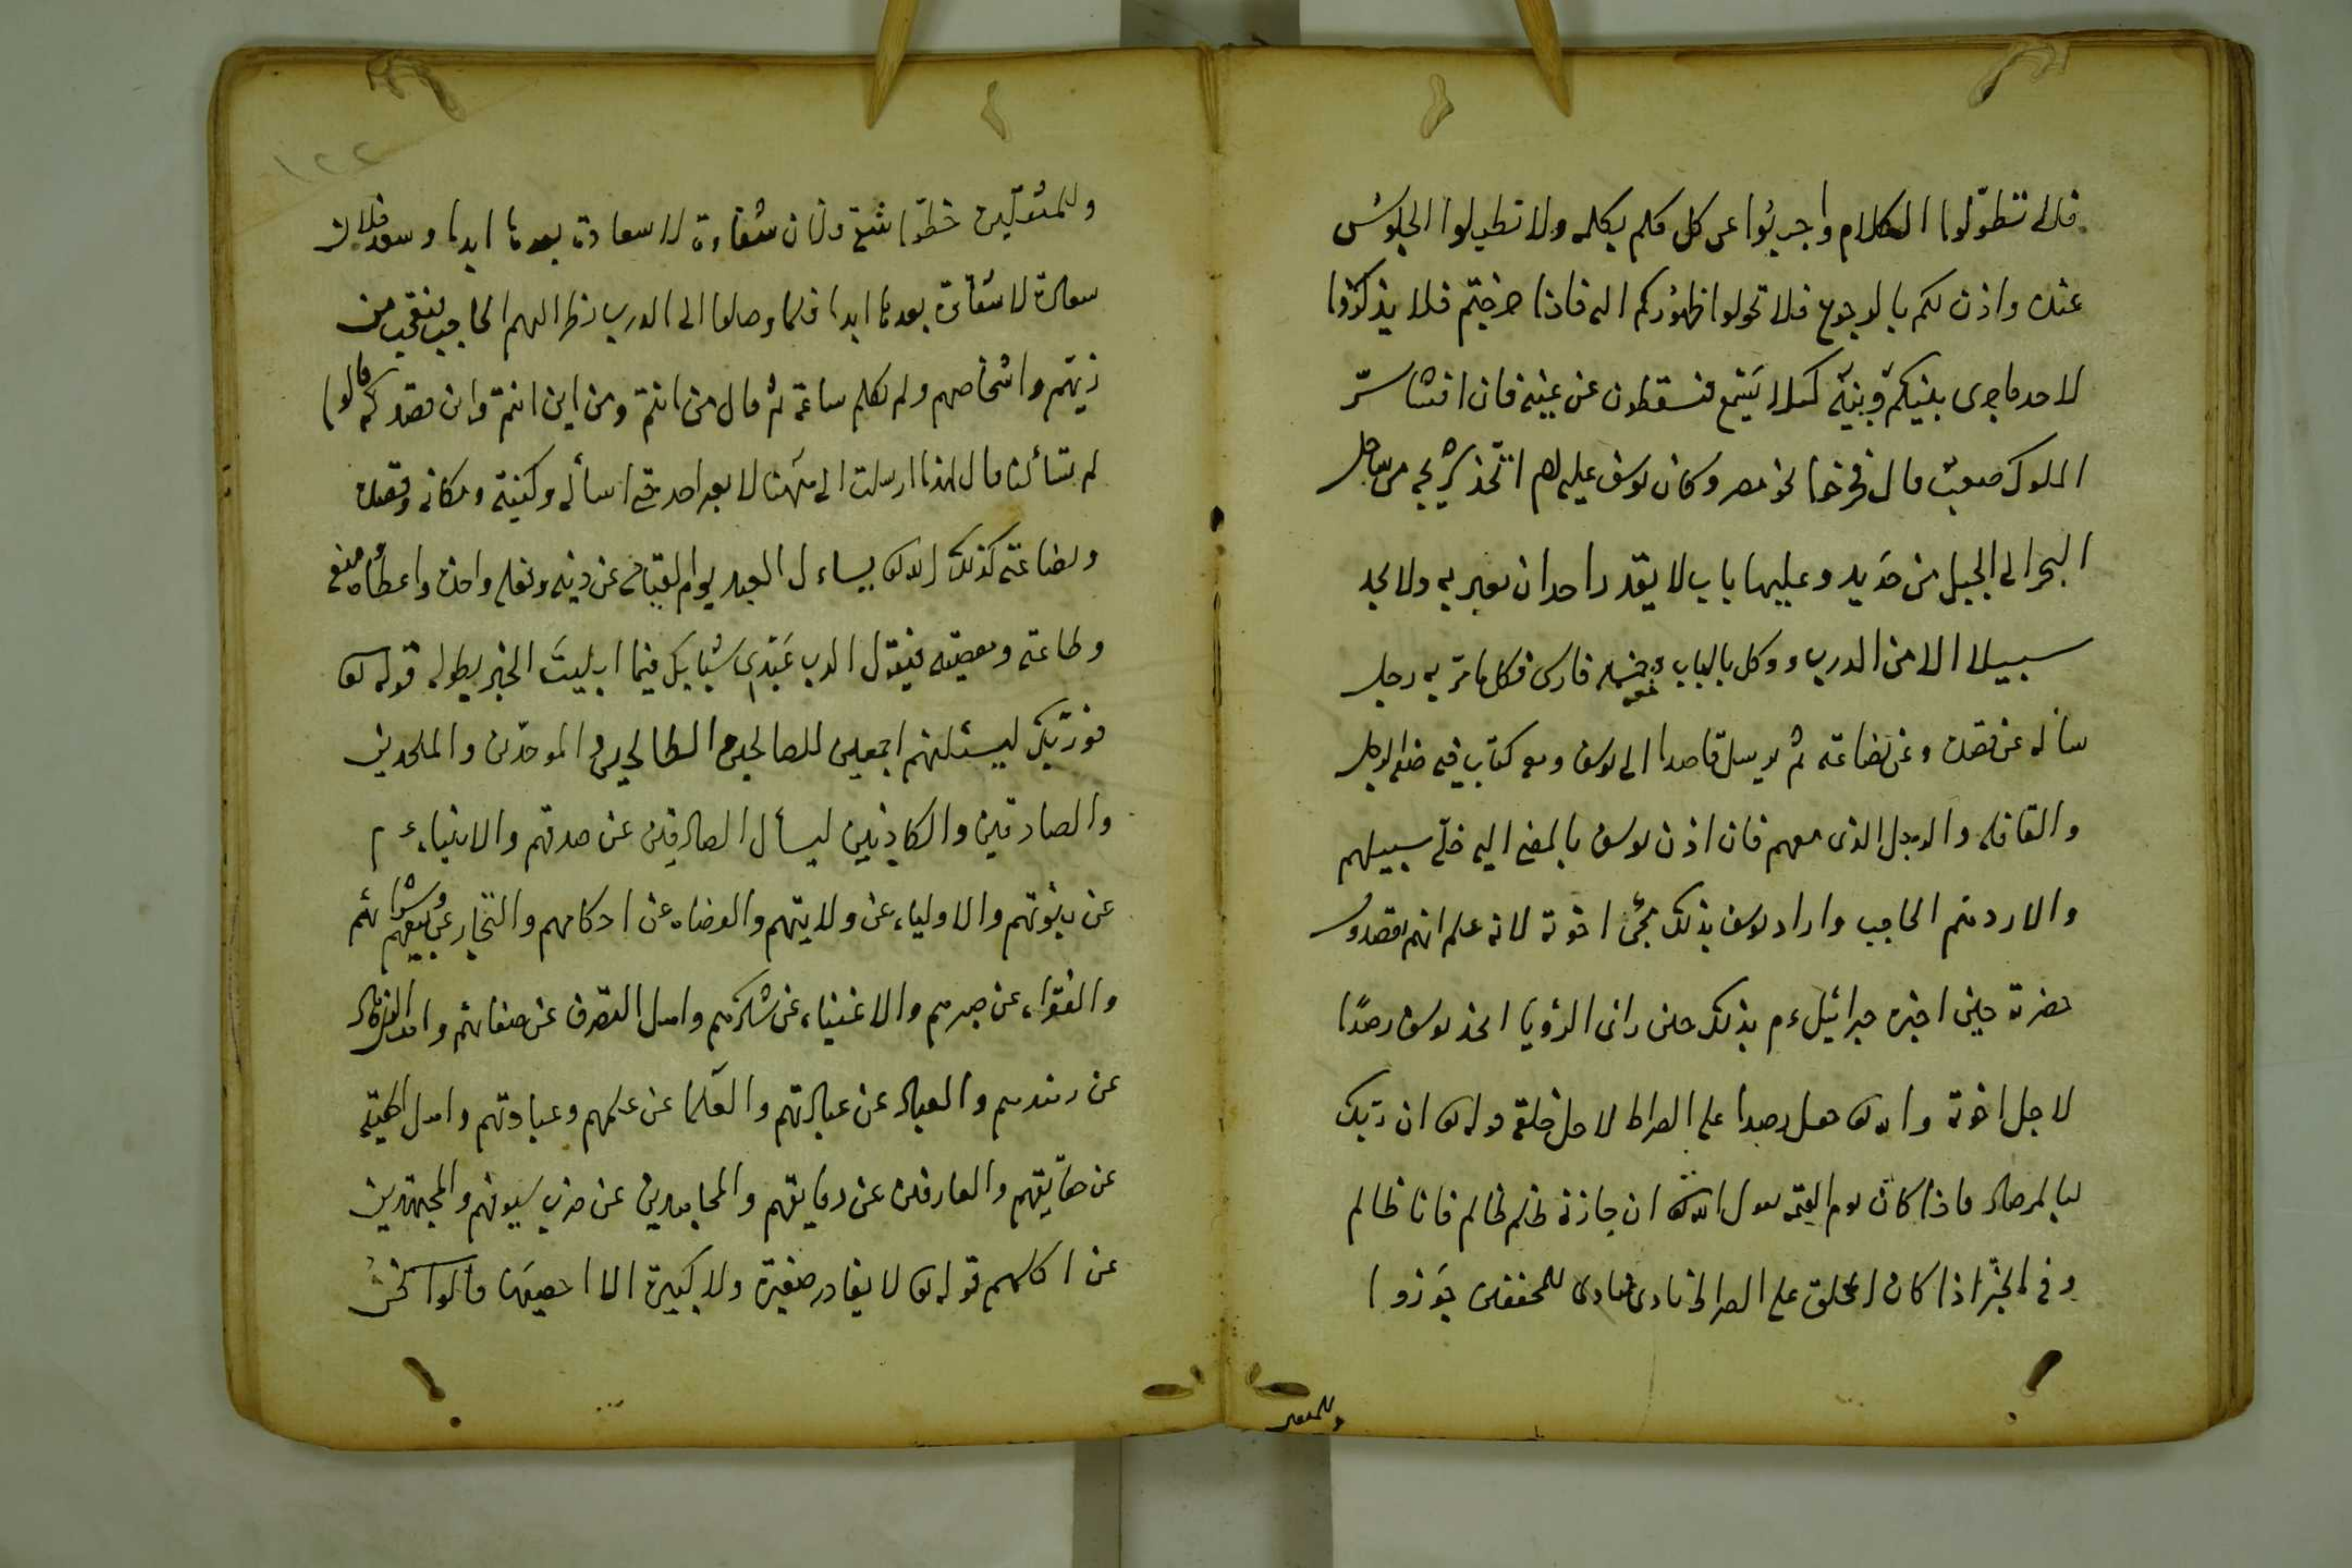 فلا تطوّلوا الكلام واجيبوا عن كل كلم بكلمه ولا تطيلوا الجلوس
عنده واذن لكم بالرجوع فلا تحولوا ظهوركم اليه فاذا خرجتم فلا يذكروا
لاحد ما جرى بينكم وبينه كيلا يسمع فتسقطون عن عينه فان افشا سرّ
الملوك صعب قال فخرجوا نحو مصر وكان يوسف عليه لم اتخذ من ساحل
البحر الى الجبل من حديد وعليها باب لا يقدر احد ان يعبر به ولا يجد
سبيلا الا من الدرب ووكل بالباب فارس فكل ما مرّ به رجل
سأله عن قصده وعن بضاعته ثم يرسل قاصدا الى يوسف ومعه كتاب فيه الرجل
والقافله والرجل الذى معهم فان اذن يوسف بالمضى اليه خلّى سبيلهم
والا ردهم الحاجب واراد يوسف بذلك مجئ اخوته لانه علم انهم يقصدون
حضرته حين اخبره جبرائيل ء م بذلك حين رائ الرؤيا اتخذ يوسف رصدًا
لاجل اخوته والله تع جعل رصدا على الصراط لاجل خلقه قوله تع ان ربك
لبالمرصاد فاذا كان يوم القيمه يقول الله تع ان جازنى ظلم ظالم فانا ظالم
وفى الخبر اذا كان الخلق على الصراط نادى منادى للمخففين جوزوا
وللمثقلين
١٢٢
وللمثقلين حطّوا شقاوة لا سعادة بعدها ابدا وسعد فلان
سعادة لا شقاوة بعدها ابدا فلما وصلوا الى الدرب نظر اليهم الحاجب فتعجب من
زيهم واشخاصهم ولم يكلم ساعة ثم قال من انتم ومن اين انتم واين قصدكم قالوا
لم تسألنا قال لهذا ارسلت الى ههنا لا يعبر احد حتى اسأله وكنيته ومكانه وقصده
وبضاعته كذلك الله تع يساءل العبد يوم القيامه عن دينه وفعله واخذه واعطائه ومنعه
وطاعته ومعصيته فيقول الرب عبدى شبابك فيما ابليت الخبر بطوله قوله تع
فوربك ليسئلنهم اجمعين للصالحين الطالحين الموحدين والملحدين
والصادقين والكاذبين ليسأل الصادقين عن صدقهم والانبياء ء م
عن نبوتهم والاولياء عن ولايتهم والقضاه عن احكامهم والتجار عن بيعهم وشرائهم
والفقراء عن صبرهم والاغنياء عن شكرهم واهل التصرف عن صفائهم واهل الزهاد
عن زهدهم والعباد عن عبادتهم والعلما عن علمهم وعبادتهم واهل
عن حقايقهم والعارفين عن دقايقهم والمجاهدين عن ضرب سيوفهم والمجتهدين
عن قوله تع لا يغادر صغيرة ولا كبيرة الا احصيها قالوا نحن